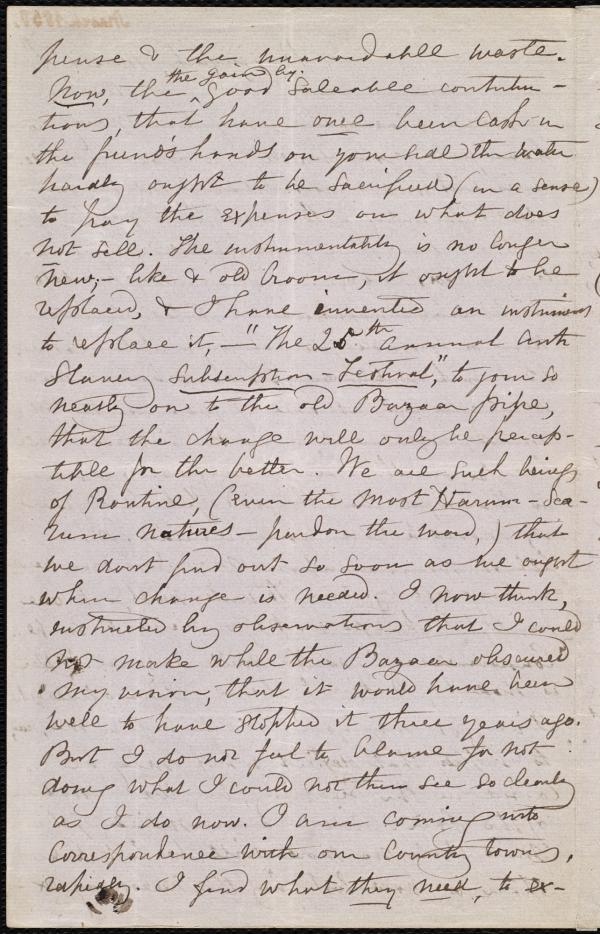 pense & the unavoidable waste.
Now, the ^ the gain by good saleable contribu-
tions, that have once been cash in
the friends hands on your side the water
hardly ought to be sacrificed (in a sense)
to pay the expenses on what does
not sell. The instrumentality is no longer
new;- like & old broom, it ought to be
replaced, & I have invented an instrument
to replace it,-"The 25th annual Anti
Slavery Subscription-Festival", to join so
neatly on to the old Bazaar pipe,
that the change will only be percep-
tible for the better. We are such beings
of Routine, (even the most Harum-Sca-
rum natures - pardon the word,) that
we dont find out so soon as we ought
when change is needed. I now think,
instructed by observations that I could
not make while the Bazaar obscured
my vision, that it would have been
well to have stopped it three years ago.
But I do not feel to blame for not
doing what I could not then see so clearly
as I do now. I am coming into
correspondence with our Country towns,
rapidly. I find what they need, to ex-